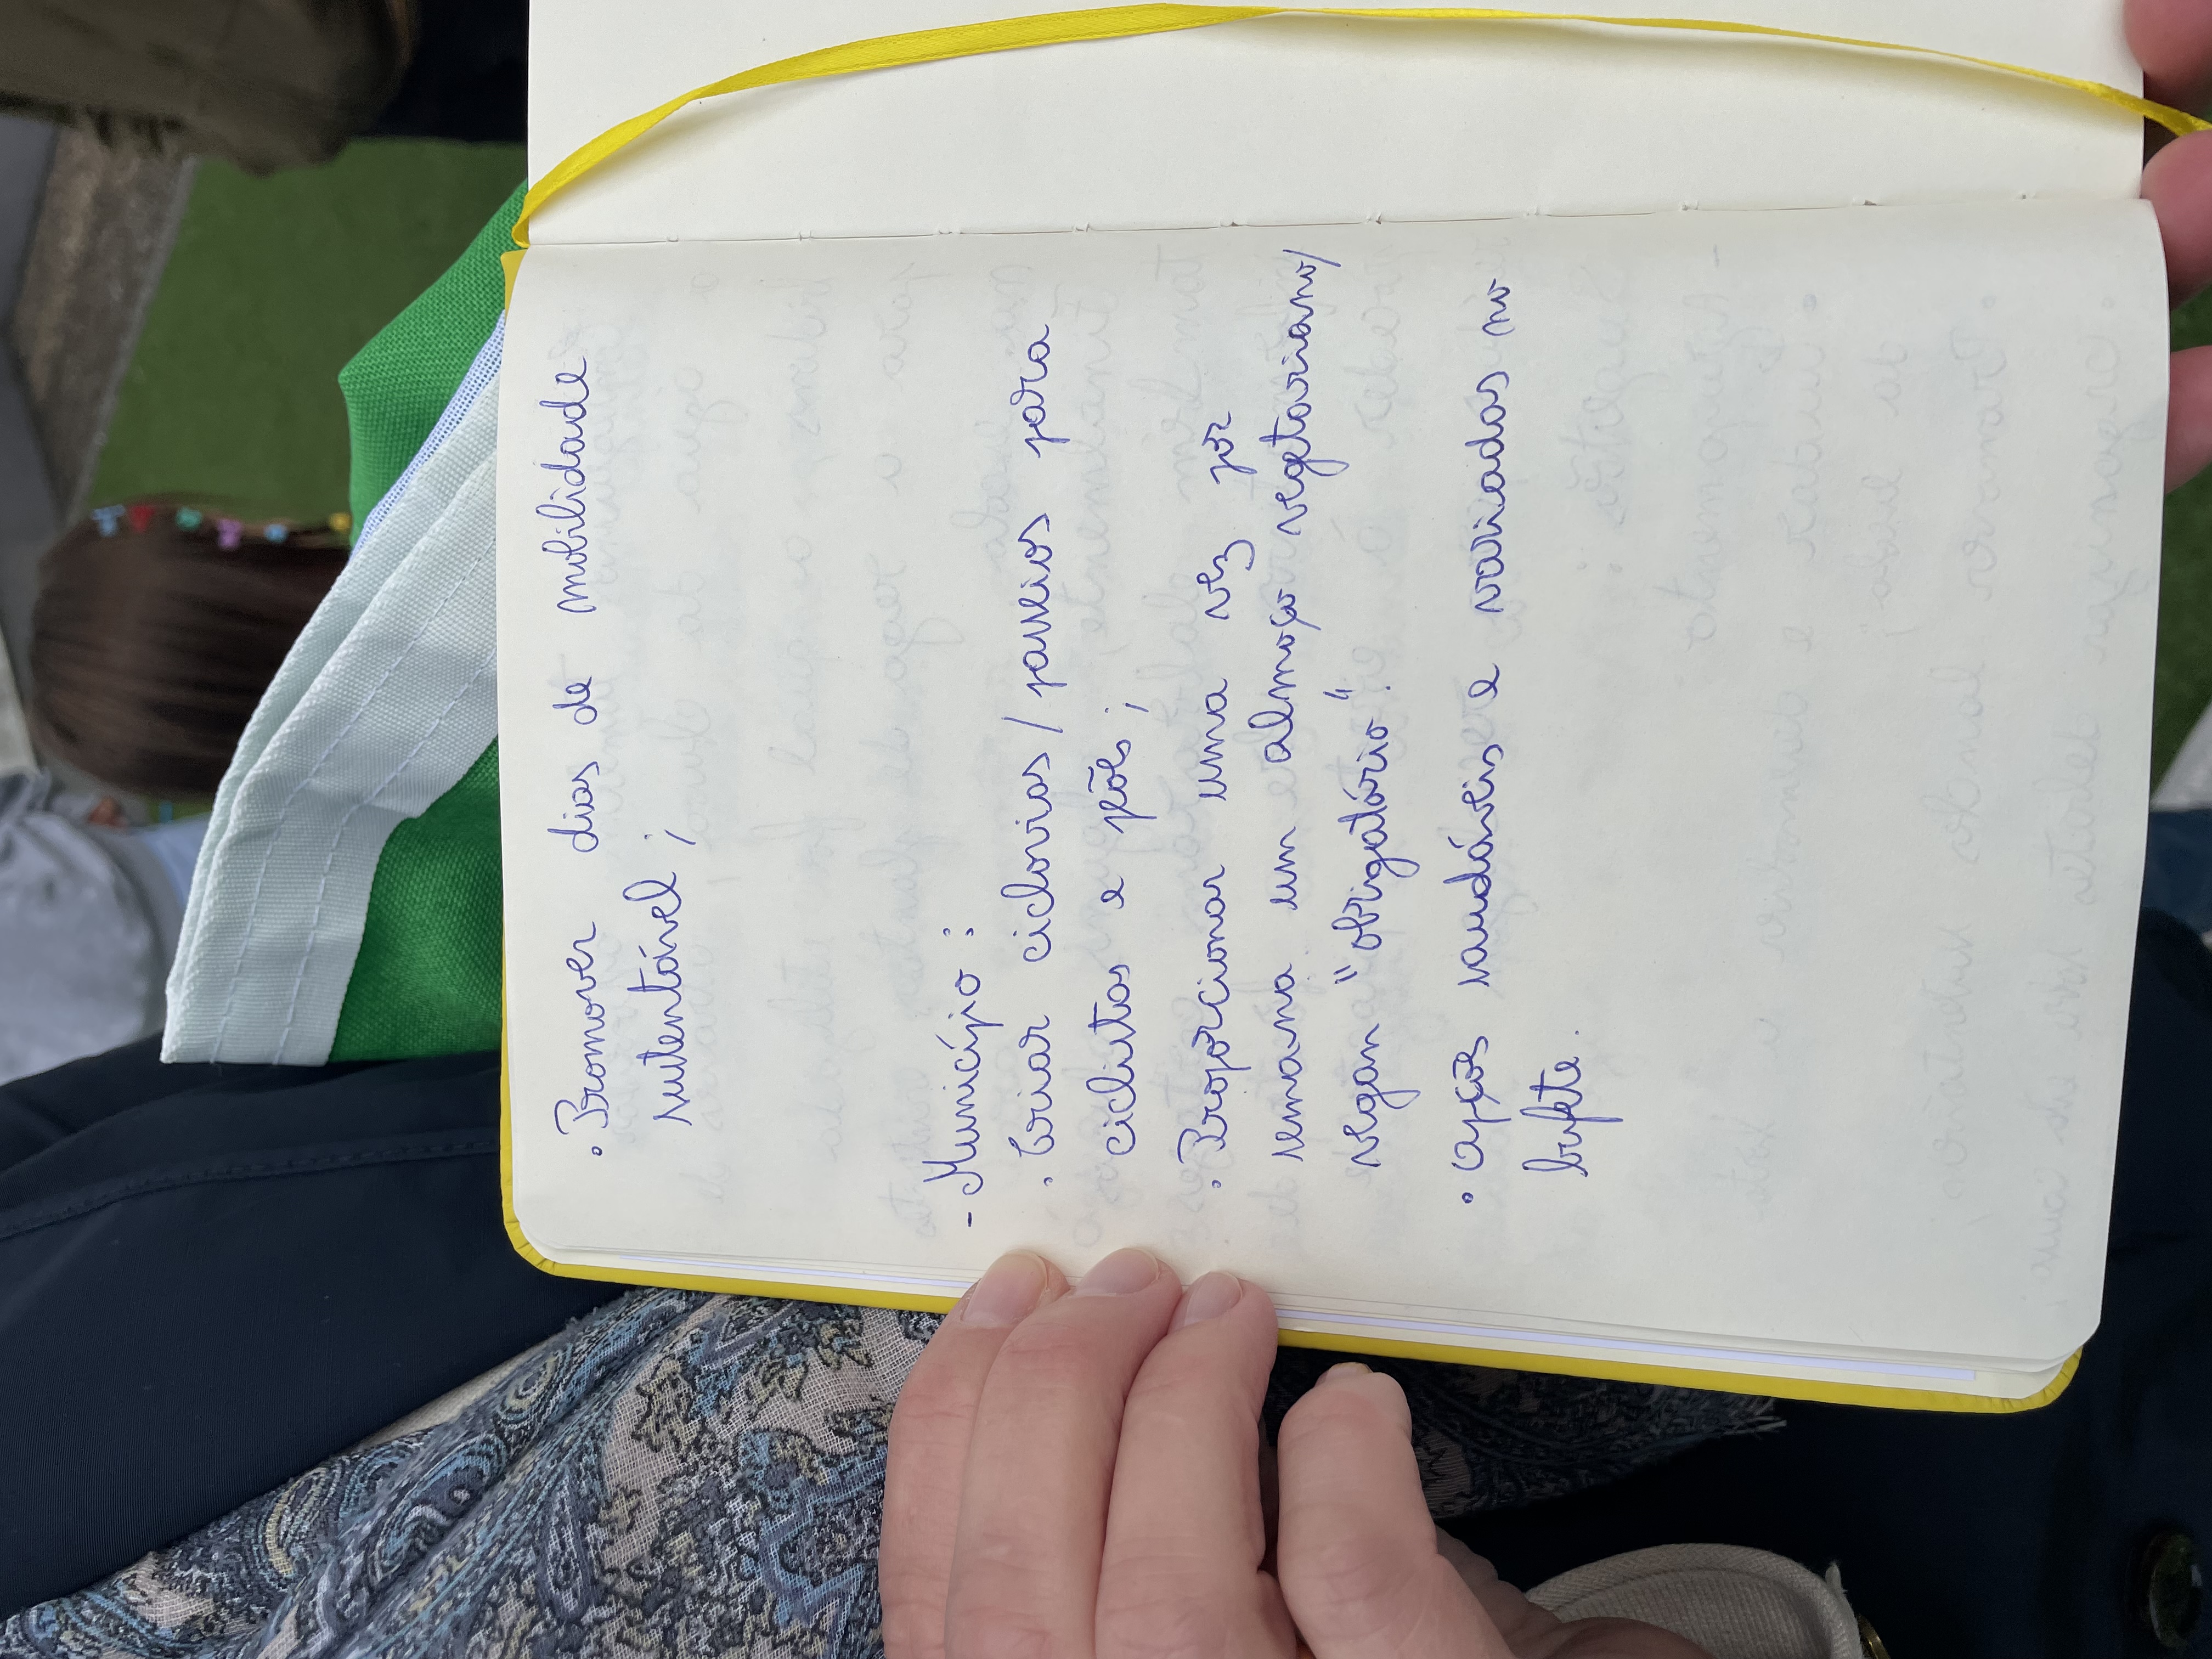 . Promover dias de mobilidade
sustentável ;
- Município :
. Criar ciclovias / passeios para
ciclistas e peões ;
. Proporcionar uma vez por
semana um almoço vegetariano/
vegan "obrigatório".
. Opções saudáveis e variadas no
bufete.